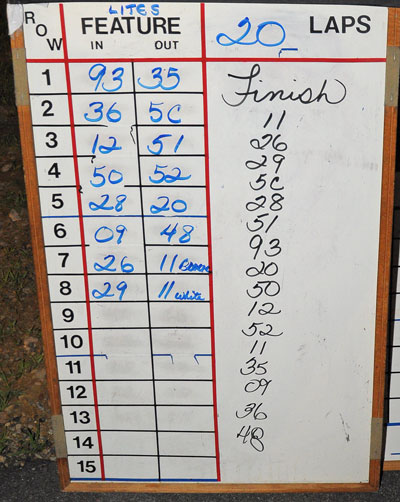 LITES
ROW FEATURE 20 LAPS
IN OUT
1 93 35
2 36 5C
3 12 51
4 50 52
5 28 20
6 09 48
7 26 11
8 29 11 White
9
10
11
12
13
14
15
Finish
11
26
29
5C
28
51
93
20
50
12
52
11
35
09
36
48